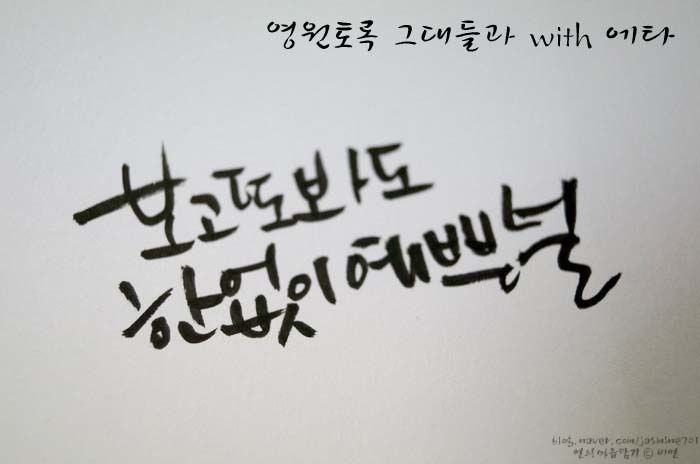 영원토록 그대들과 with 에타
보고또봐도
한없이예쁘널
blog.naver.com/jasmine701